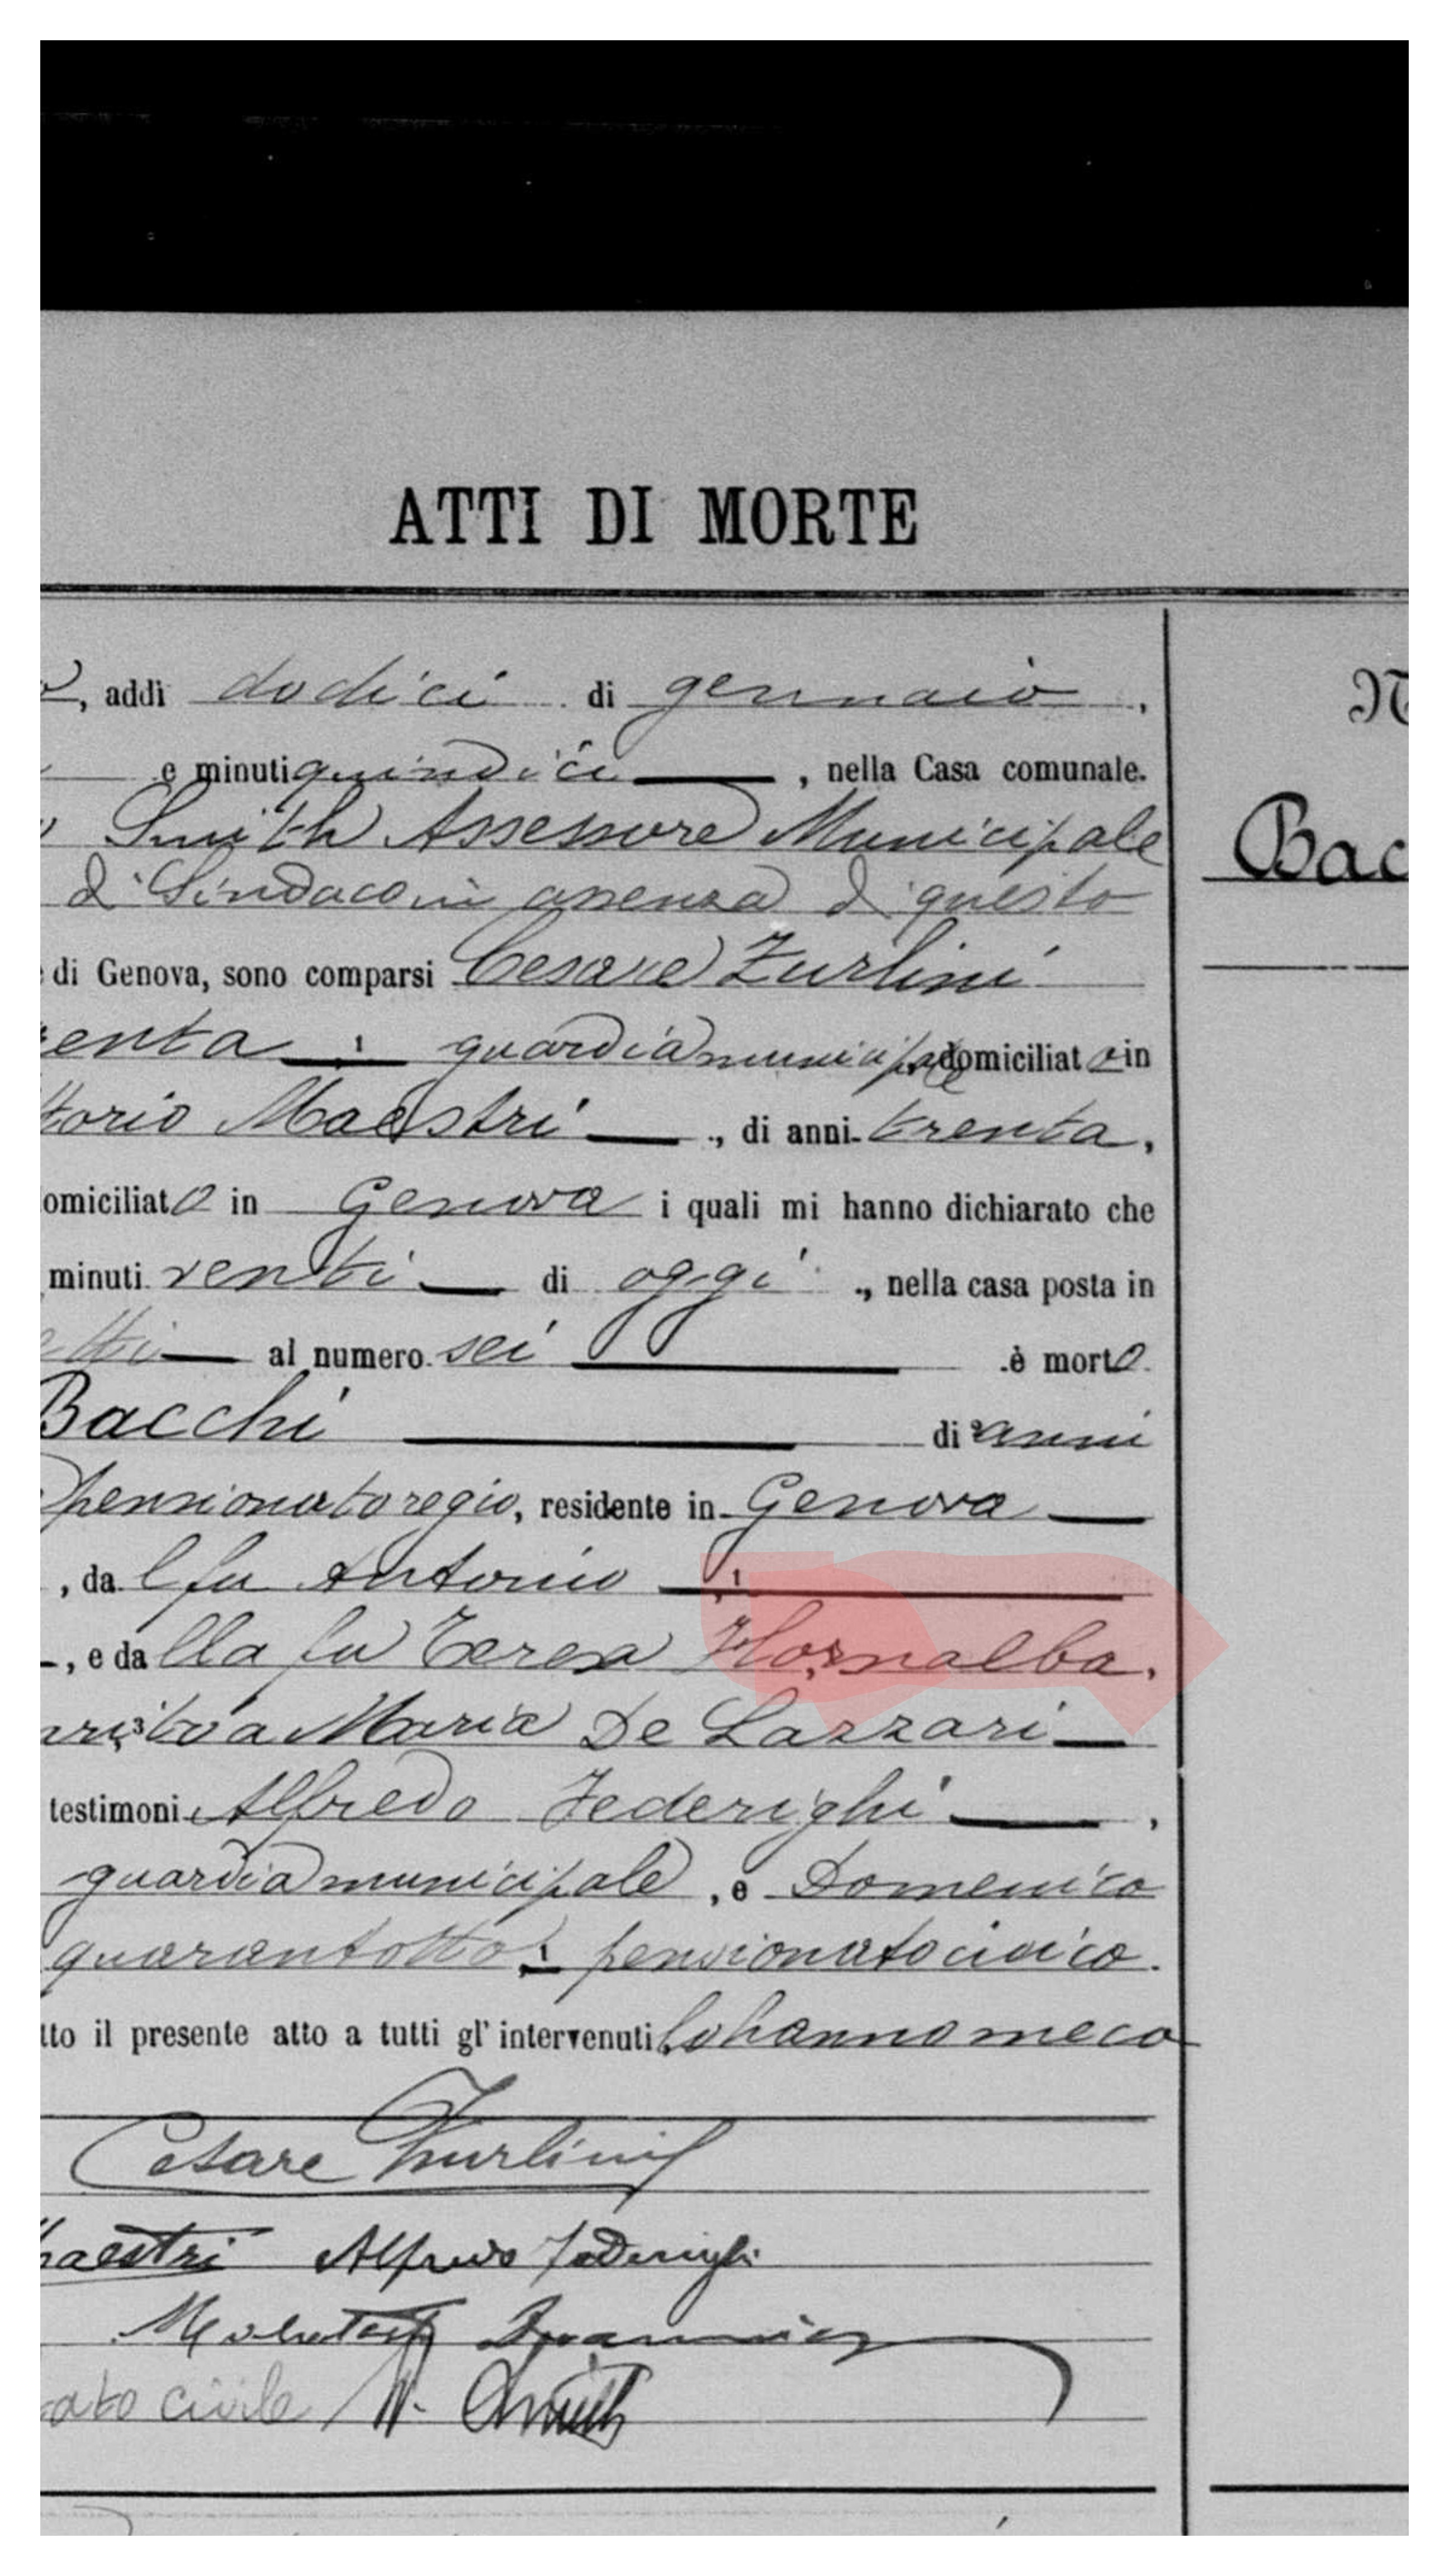 ATTI DI MORTE
, addì dodici di gennaio,
e minuti quindici, nella Casa comunale.
Smith Assessore Municipale
di Sindaco in assenza di questo
di Genova, sono comparsi Cesare Zurlini
enta guardia municipale domiciliato in
torio Maestri, di anni trenta,
omiciliato in Genova i quali mi hanno dichiarato che
minuti venti di oggi, nella casa posta in
etti al numero sei è morto
Bacchi di anni
pensionato regio, residente in Genova
, da l fu Antonio
, e da lla fu Teresa Hornalba.
Maria De Lazzari
testimoni Alfredo Federighi,
guardia municipale, e Domenico
quarantotto pensionato civico.
tto il presente atto a tutti gl' intervenuti lo hanno meco
Cesare Zurlini
Maestri Alfredo Federighi
ato civile
Bac